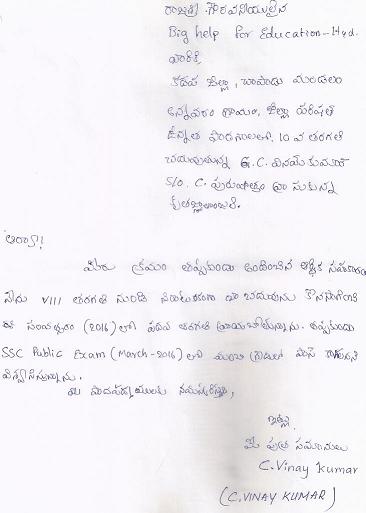 రాజశ్రీ గౌరవనీయులైన
Big help for Education-Hyd.
వారికి,
కడప జిల్లా, చాపాడు మండలం
అన్నవరం గ్రామం, జిల్లా పరిషత్
ఉన్నత పాఠశాలలో, 10 వ తరగతి
చదువుతున్న G.C. వినయ్ కుమార్
S/o. C. పురుషోత్తం వ్రాసుకున్న
కృతజ్ఞతాంజలి.
ఆర్యా!
మీరు క్రమం తప్పకుండా అందించిన ఆర్థిక సహకారం
నేను VIII తరగతి నుండి నిరాటంకంగా నా చదువును కొనసాగించి
ఈ సంవత్సరం (2016) లో పదవ తరగతి వ్రాయబోతున్నాను. తప్పకుండా
SSC Public Exam (March-2016) లో మంచి గ్రేడులో పాస్ కాగలనని
విశ్వసిస్తున్నాను.
మీ పాదపద్మములకు నమస్కరిస్తూ,
ఇట్లు
మీ పుత్ర సమానులు
C.Vinay kumar
(C.VINAY KUMAR)